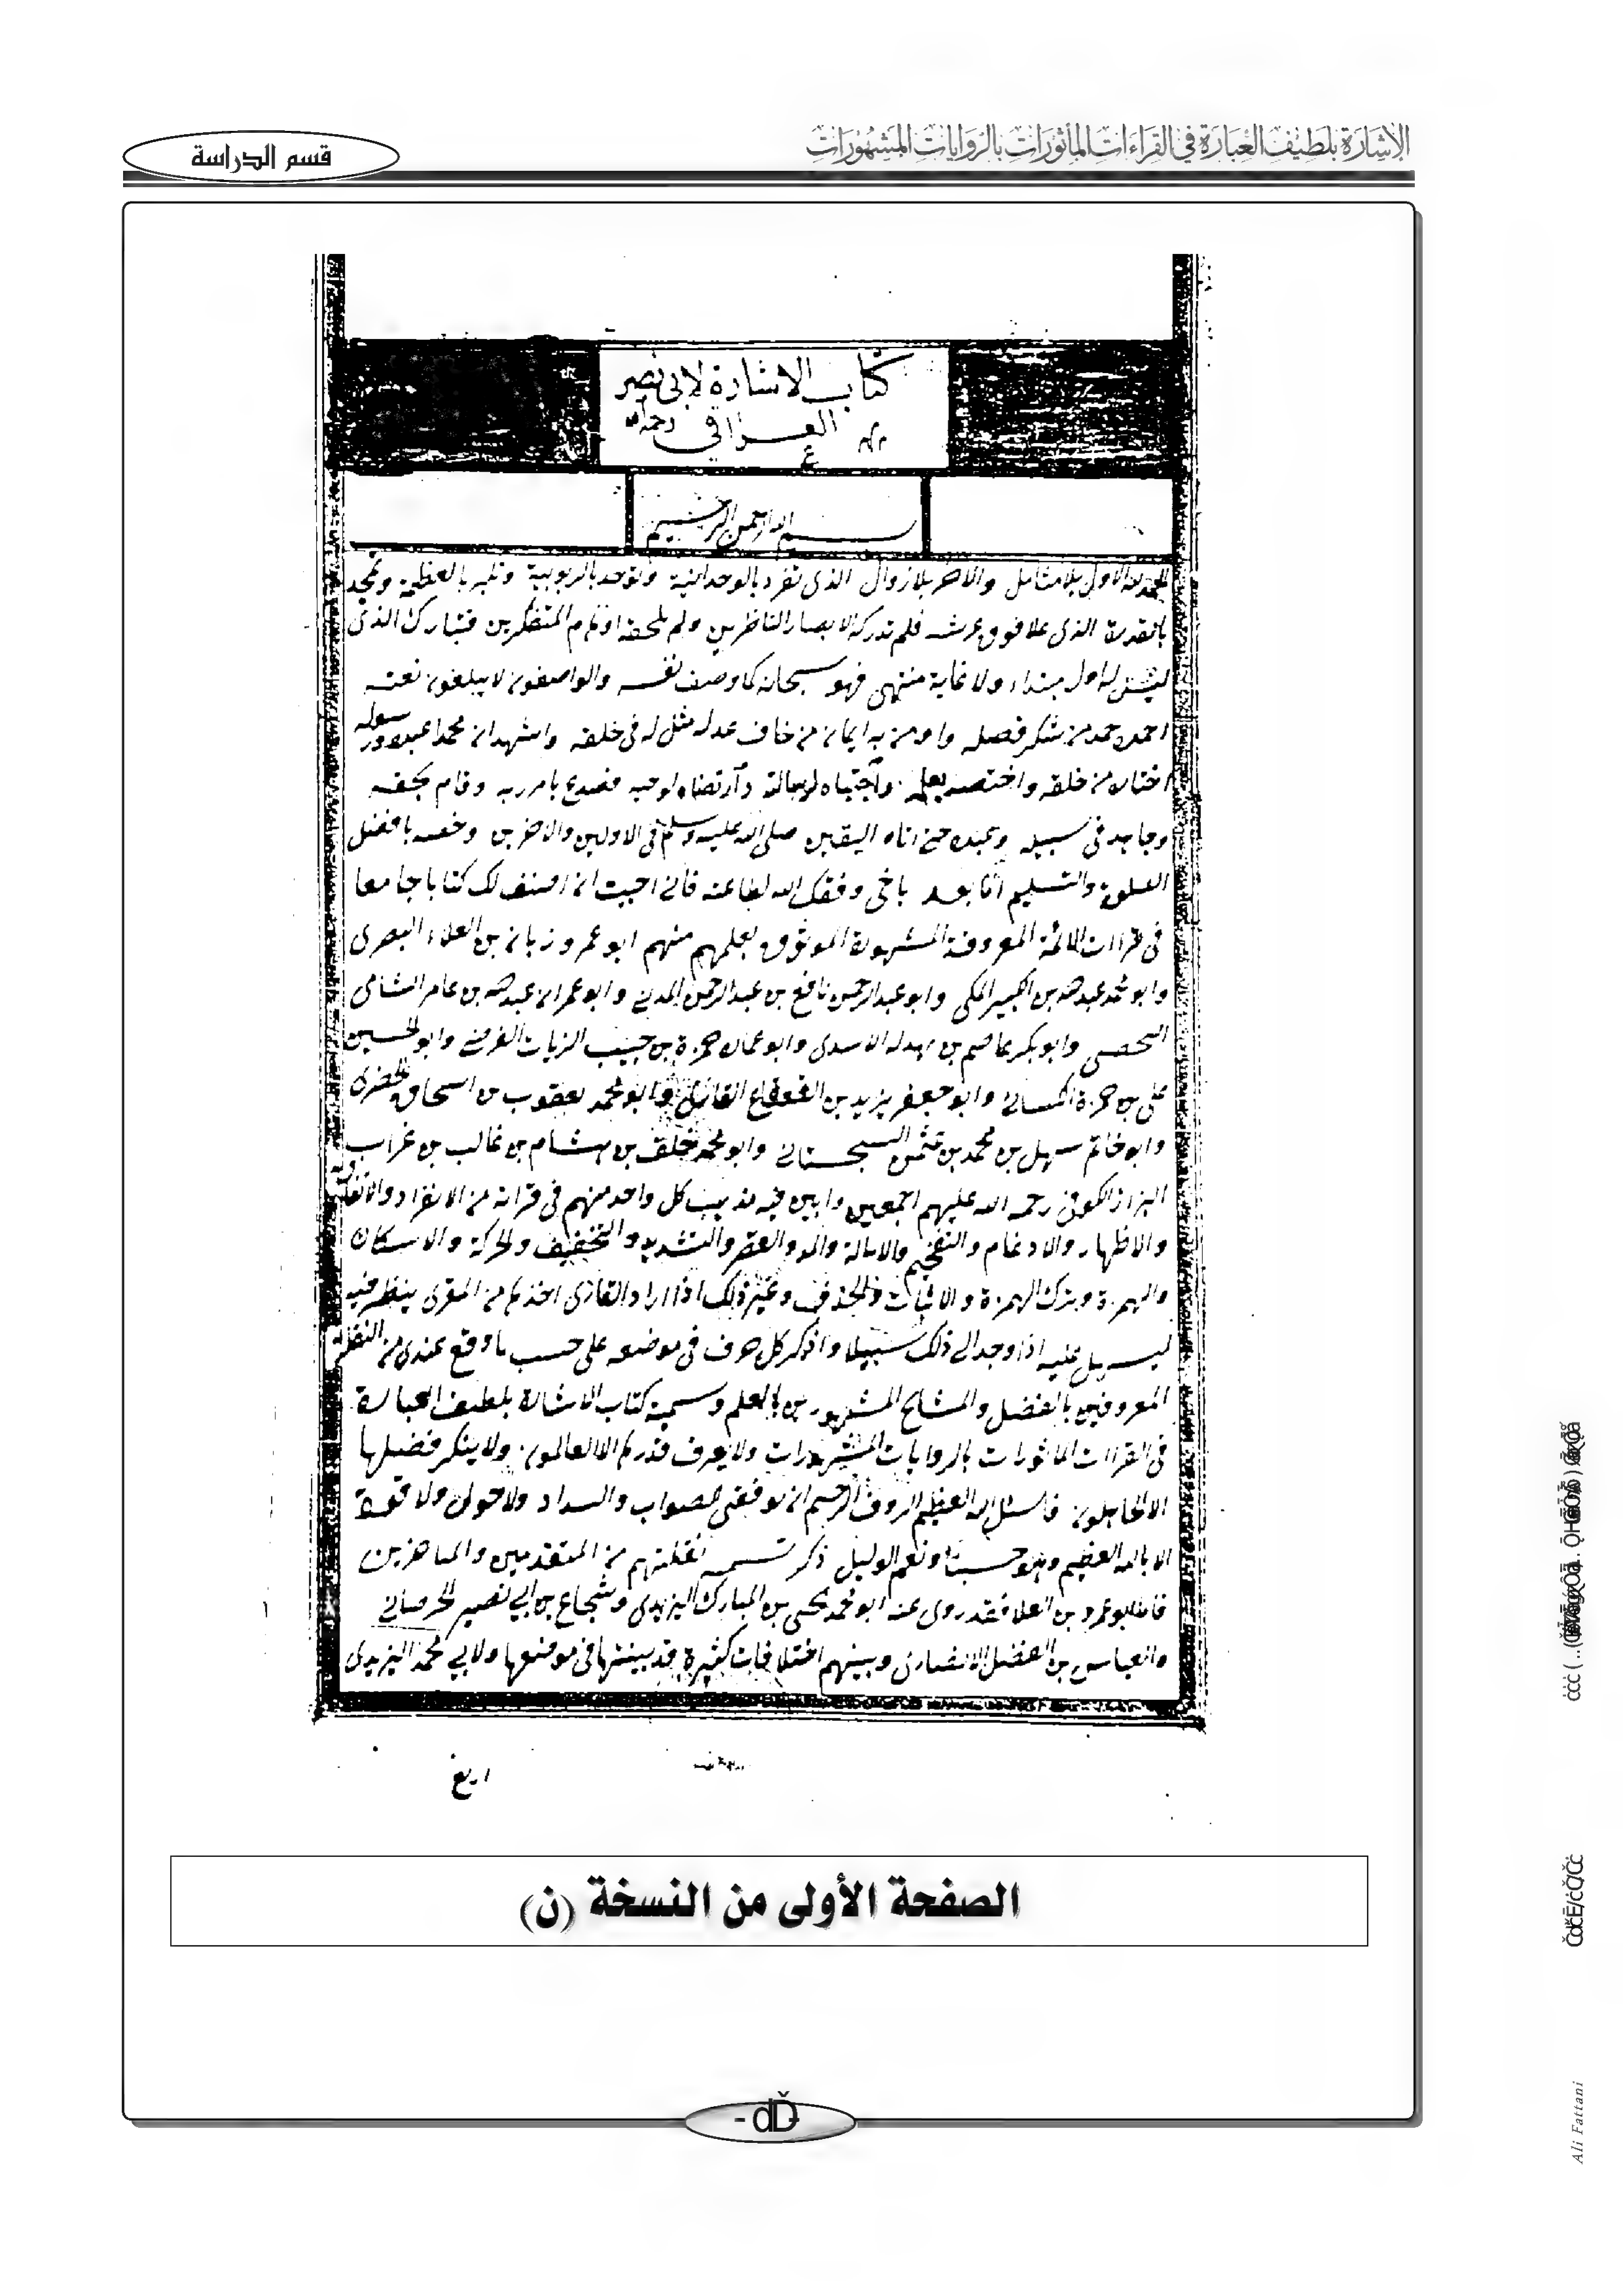 الإشارة بلطيف العبارة في القراءات المأثورات بالروايات المشهورات
قسم الدراسة
كتاب الاشارة لابى نصر
العراقي رحمه الله
بسم الله الرحمن الرحيم
الحمد لله الاول بلا مثال والاخر بلا زوال الذى تفرد بالوحدانية وتوحد بالربوبية وتكبر بالعظمة وتمجد
بالقدرة الذى علا فوق عرشه فلم تدركه الابصار الناظرين ولم يلحقه اوهام المتفكرين فتبارك الذى
ليس له اول مبتداء ولا غاية منتهى فهو سبحانه كما وصف نفسه والواصفون لا يبلغون نعته
احمده حمد من شكر فضله واومن به ايمان من خاف عدله مثل له فى خلقه واشهد ان محمدا عبده ورسوله
اختاره من خلقه واختصه بعلمه واجتباه لرسالته وارتضاه لوحيه فصدع بامر ربه وقام بحقه
وجاهد فى سبيله وعبده حتى اتاه اليقين صلى الله عليه وسلم فى الاولين والاخرين وخصه بافضل
الصلوة والتسليم اما بعد ياخى وفقك الله لطاعته فانى احببت ان اصنف لك كتابا جامعا
فى قراات الائمة المعروفة المشهورة الموثوق بعلمهم منهم ابو عمرو زبان بن العلاء البصرى
وابو محمد عبد الله بن الكبير المكى وابو عبد الرحمن نافع بن عبد الرحمن المدنى وابو عمران عبد الله بن عامر الشامى
اليحصبى وابو بكر عاصم بن بهدله الاسدى وابو عمارة حمزة بن حبيب الزيات الفرضى وابو الحسين
على بن حمزة الكسائى وابو جعفر يزيد بن القعقاع القارئ وابو محمد يعقوب بن اسحاق الحضرمى
وابو حاتم سهل بن محمد بن عثمن السجستانى وابو محمد خلف بن هشام بن غالب بن غراب
البزاز الكوفى رحمه الله عليهم اجمعين وابين فيه مذهب كل واحد منهم فى قراته من الانفراد والاتفاق
والاظهار والادغام والتفخيم والامالة والمد والقصر والتشديد والتخفيف والحركة والاسكان
والهمزة وبترك الهمزة والاثبات والحذف وغير ذلك اذا اراد القارئ اخذها من المقرى ينظر فيه
ليسهل عليه اذا وجد الى ذلك سبيلا واذكر كل حرف فى موضعه على حسب ما وقع عندى من النقلة
المعروفين بالفضل والمشايخ المشهورين بالعلم وسميته كتاب الاشارة بلطيف العبارة
فى القراات الماثورات بالروايات المشهورات ولا يعرف قدرها الا العالمون ولا ينكر فضلها
الا الجاهلون فاسئل الله العظيم الروف الرحيم ان يوفقنى للصواب والسداد ولا حول ولا قوة
الا بالله العظيم وهو حسبنا ونعم الوكيل ذكر تسميه نقلتهم من المتقدمين والماهرين
فاما ابو عمرو بن العلا فقد روى عنه ابو محمد يحيى بن المبارك اليزيدى وشجاع بن ابى نصير الخرصانى
والعباس بن الفضل الانصارى وبينهم اختلافات كثيرة قد بينتها فى موضعها ولابى محمد اليزيدى
الصفحة الأولى من النسخة (ن)
Ali Fattani